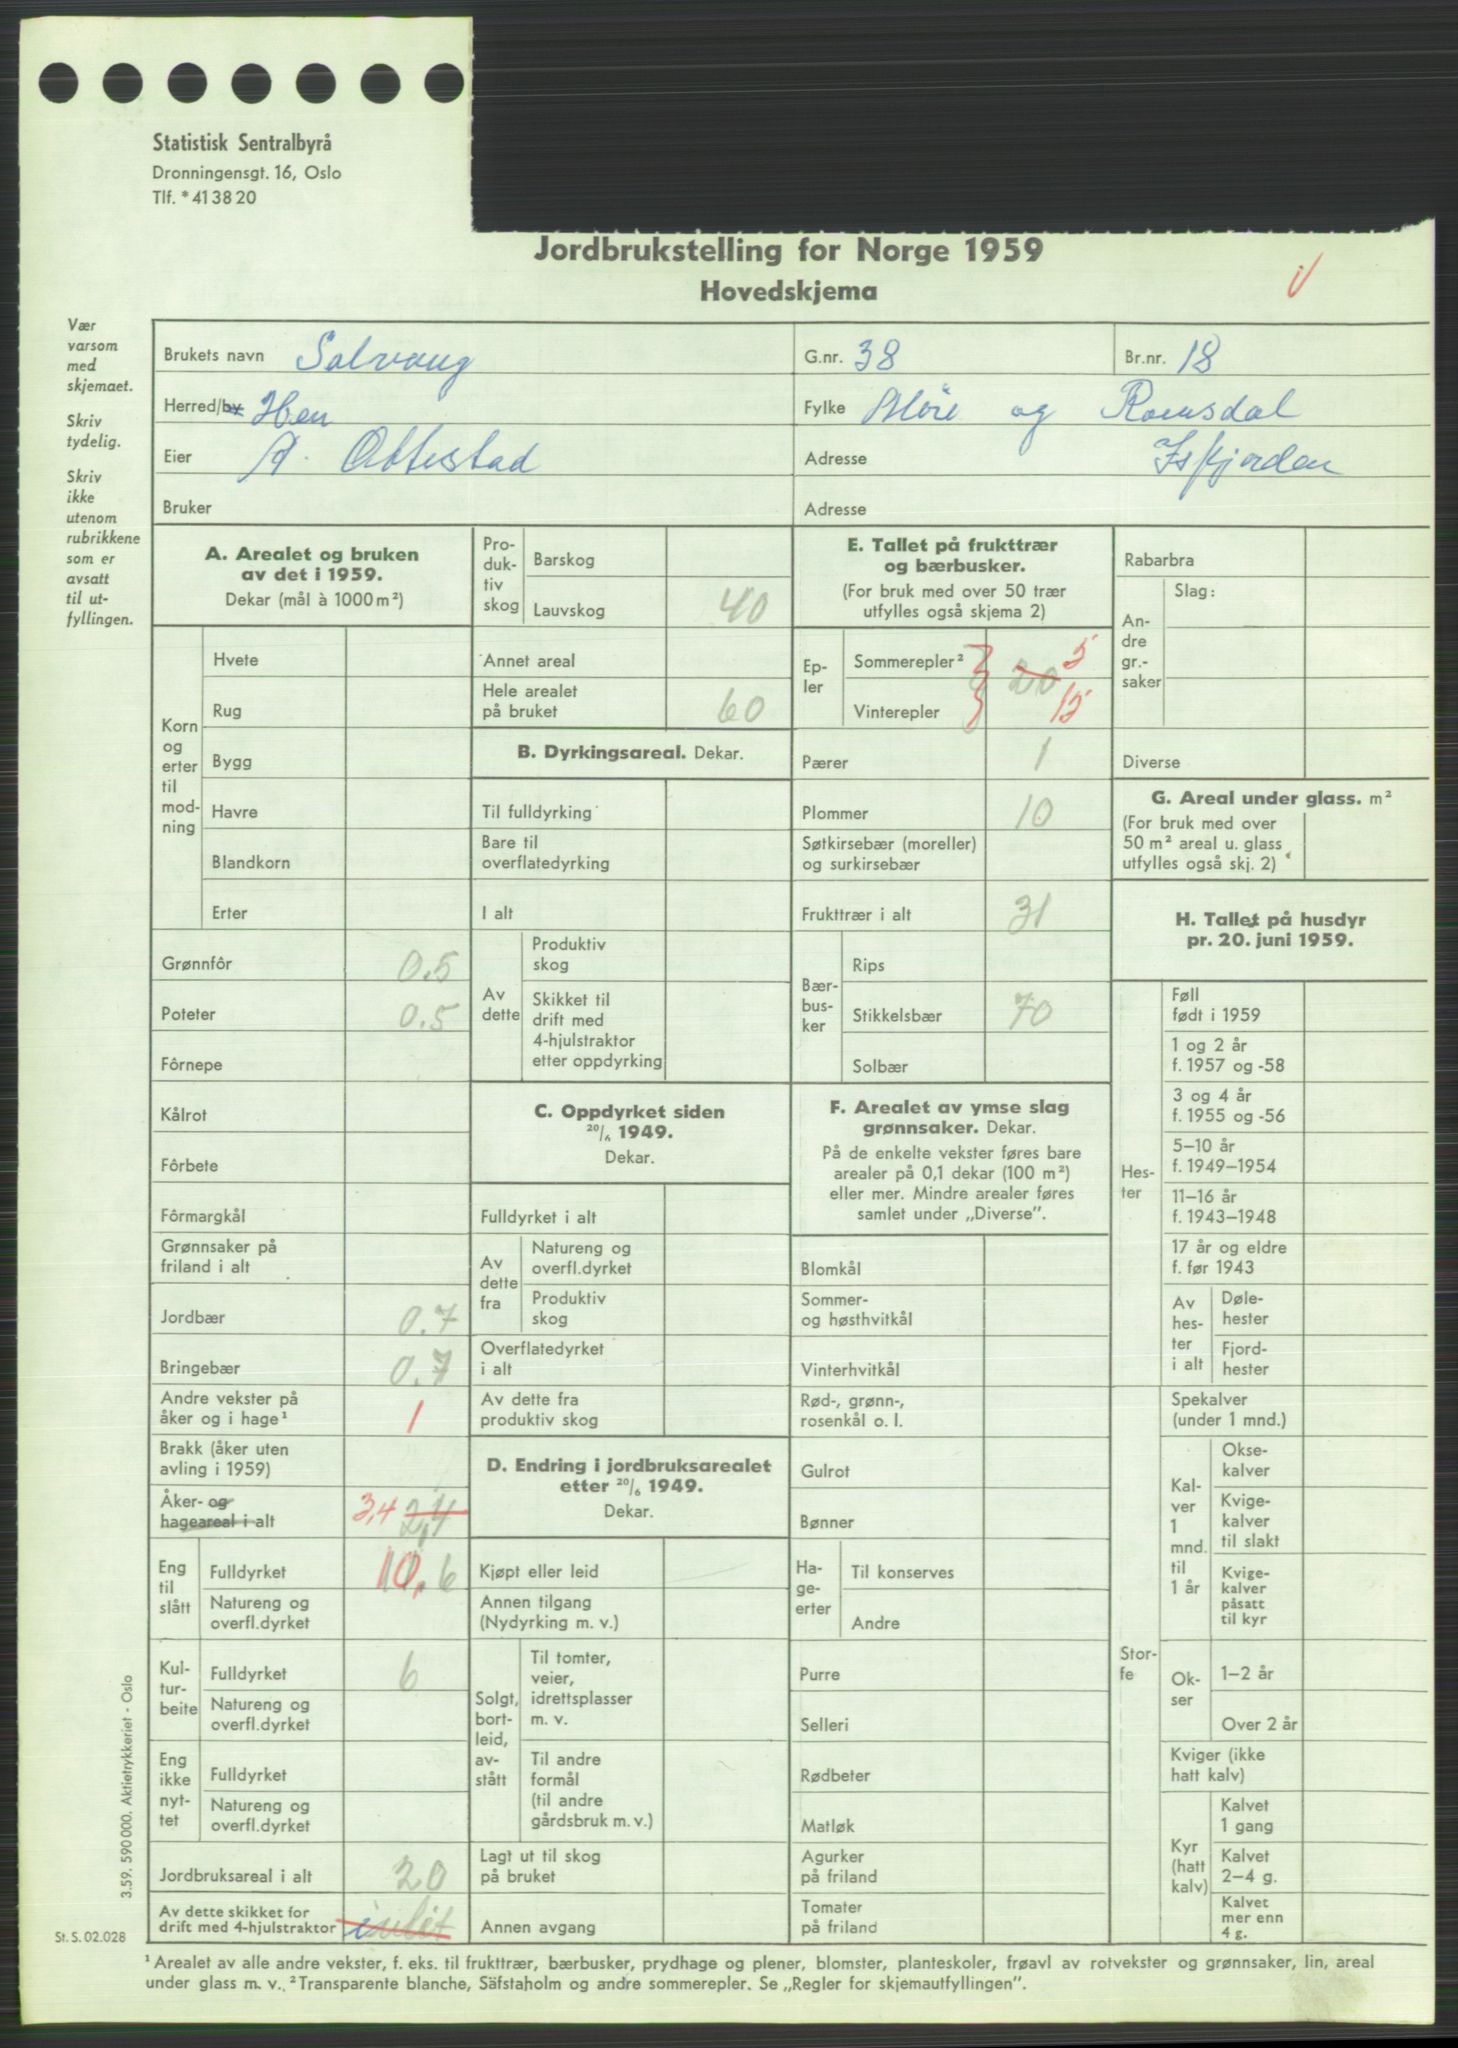 Statistisk Sentralbyrå
Dronningensgt. 16, Oslo
Tlf. * 41 38 20
Jordbrukstelling for Norge 1959
Hovedskjema
Vær
varsom
med
skjemaet.
Skriv
tydelig.
Skriv
ikke
utenom
rubrikkene
som er
avsatt
til ut-
fyllingen.
Brukets navn Solvang G.nr. 38 Br.nr. 18
Herred/by Hen Fylke Møre og Romsdal
Eier A. Ottestad Adresse Isfjorden
Bruker Adresse
A. Arealet og bruken
av det i 1959.
Dekar (mål à 1000 m²)
Korn
og
erter
til
mod-
ning
Hvete
Rug
Bygg
Havre
Blandkorn
Erter
Grønnfôr 0.5
Poteter 0.5
Fôrnepe
Kålrot
Fôrbete
Fôrmargkål
Grønnsaker på
friland i alt
Jordbær 0.7
Bringebær 0.7
Andre vekster på
åker og i hage¹ 1
Brakk (åker uten
avling i 1959)
Åker- og
hageareal i alt 3,4 2,4
Eng
til
slått
Fulldyrket 10,6
Natureng og
overfl.dyrket
Kul-
tur-
beite
Fulldyrket 6
Natureng og
overfl.dyrket
Eng
ikke
nyt-
tet
Fulldyrket
Natureng og
overfl.dyrket
Jordbruksareal i alt 20
Av dette skikket for
drift med 4-hjulstraktor
Pro-
duk-
tiv
skog
Barskog
Lauvskog 40
Annet areal
Hele arealet
på bruket 60
B. Dyrkingsareal. Dekar.
Til fulldyrking
Bare til
overflatedyrking
I alt
Av
dette
Produktiv
skog
Skikket til
drift med
4-hjulstraktor
etter oppdyrking
C. Oppdyrket siden
20/6 1949.
Dekar.
Fulldyrket i alt
Av
dette
fra
Natureng og
overfl.dyrket
Produktiv
skog
Overflatedyrket
i alt
Av dette fra
produktiv skog
D. Endring i jordbruksarealet
etter 20/6 1949.
Dekar.
Kjøpt eller leid
Annen tilgang
(Nydyrking m. v.)
Solgt,
bort-
leid,
av-
stått
Til tomter,
veier,
idrettsplasser
m. v.
Til andre
formål
(til andre
gårdsbruk m. v.)
Lagt ut til skog
på bruket
Annen avgang
E. Tallet på frukttrær
og bærbusker.
(For bruk med over 50 trær
utfylles også skjema 2)
Ep-
ler
Sommerepler² 20 5
Vinterepler 15
Pærer 1
Plommer 10
Søtkirsebær (moreller)
og surkirsebær
Frukttrær i alt 31
Bær-
bus-
ker
Rips
Stikkelsbær 70
Solbær
F. Arealet av ymse slag
grønnsaker. Dekar.
På de enkelte vekster føres bare
arealer på 0,1 dekar (100 m²)
eller mer. Mindre arealer føres
samlet under „Diverse”.
Blomkål
Sommer-
og høsthvitkål
Vinterhvitkål
Rød-, grønn-,
rosenkål o. l.
Gulrot
Bønner
Ha-
ge-
erter
Til konserves
Andre
Purre
Selleri
Rødbeter
Matløk
Agurker
på friland
Tomater
på friland
Rabarbra
An-
dre
gr.-
saker
Slag:
Diverse
G. Areal under glass. m²
(For bruk med over
50 m² areal u. glass
utfylles også skj. 2)
H. Tallet på husdyr
pr. 20. juni 1959.
Hes-
ter
Føll
født i 1959
1 og 2 år
f. 1957 og -58
3 og 4 år
f. 1955 og -56
5–10 år
f. 1949–1954
11–16 år
f. 1943–1948
17 år og eldre
f. før 1943
Av
hes-
ter
i alt
Døle-
hester
Fjord-
hester
Stor-
fe
Spekalver
(under 1 mnd.)
Kal-
ver
1
mnd.
til
1 år
Okse-
kalver
Kvige-
kalver
til slakt
Kvige-
kalver
påsatt
til kyr
Ok-
ser
1–2 år
Over 2 år
Kviger (ikke
hatt kalv)
Kyr
(hatt
kalv)
Kalvet
1 gang
Kalvet
2–4 g.
Kalvet
mer enn
4 g.
3.59. 590 000. Aktietrykkeriet - Oslo
St. S. 02.028
¹ Arealet av alle andre vekster, f. eks. til frukttrær, bærbusker, prydhage og plener, blomster, planteskoler, frøavl av rotvekster og grønnsaker, lin, areal
under glass m. v. ² Transparente blanche, Säfstaholm og andre sommerepler. Se „Regler for skjemautfyllingen”.